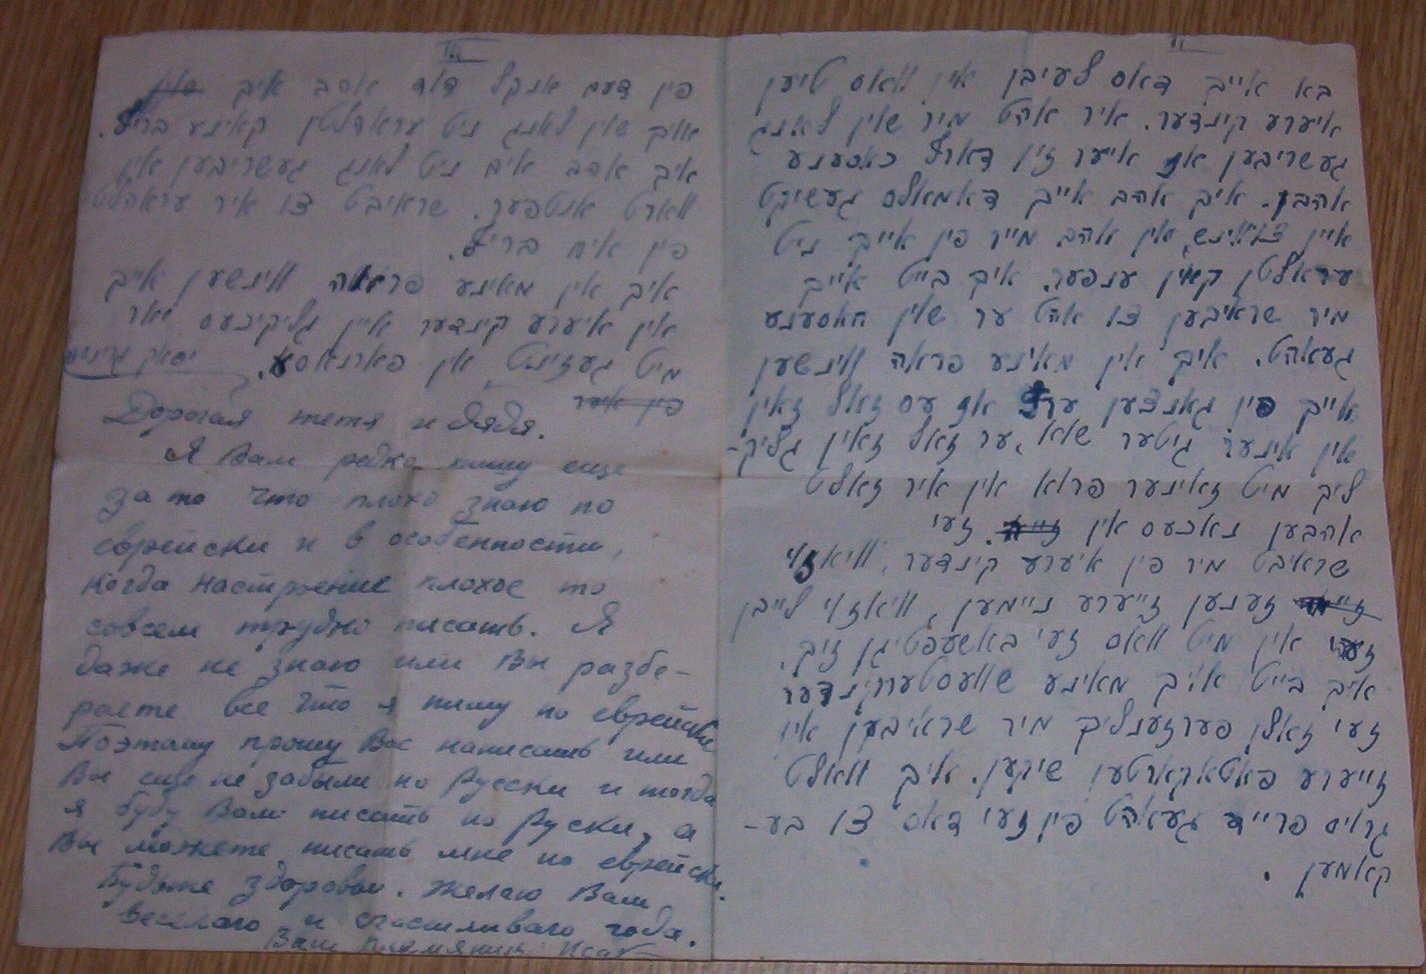 II
בא אייך דאס לעיבן אין וואס טיען
איערע קינדער. איר אהט מיר שוין לאנג
געשריבען אז אייער זין דארף כאסענע
אהבן. איך אהב אייך דאמאלס געשיקט
איין צווינש, אין אהב מייר פין אייך ניט
ערהאלטן קיין ענפער. איך בייט אייך
מיר שראיבען צו אהט ער שוין חאסענע
געאהט. איך אין מאינע פראה ווינשען
אייך פין גאנצען ערץ אז עס זאל זאין
אין איינער גיטער שאא, ער זאל זאין גליק-
ליך מיט זאינער פרוא אין איר זאלט
אהבען נאכעס אין זייא. זעי
שראיבט מיר פין איערע קינדער, וויאזוי
זעגען זייערע ניימען, וויאזוי לייבן
זעי אין מיט וואס זעי באשעפטיגן זיך.
איך בייט אויך מאינע שוועסטערקינדער
זעי זאלן פערזענליך מיר שראיבען אין
זייערע פאטאקארטען שיקען. איך וואלט
גרויס פרייד געאהט פין זעי דאס צו בע-
קאמען.
III
פין דעם אנקל דוד אהב איך שוין
אויך שוין לאנג ניט ערהאלטן קאינע בריף.
איך אהב אים ניט לאנג געשריבען אין
ווארט אנטפער. שראיבט צו איר ערהאלט
פין אים בריף.
איך אין מאינע פראה ווינשען אייך
אין איערע קינדער איין גליקינעס יאר
מיט געזינט אין פארנאסע.
פין איער
Дорогая тетя и дядя.
Я Вам редко пишу еще
за то что плохо знаю по
еврейски и в особенности,
когда настроение плохое то
совсем трудно писать. Я
даже не знаю или Вы разбе-
раете все что я пишу по еврейски
Поэтому прошу Вас написать или
Вы еще не забыли по Русски и тогда
я буду Вам писать по Руски, а
Вы можете писать мне по еврейски.
Будьте здоровы. Желаю Вам
веселаго и счастливаго года.
Ваш племяник Исак